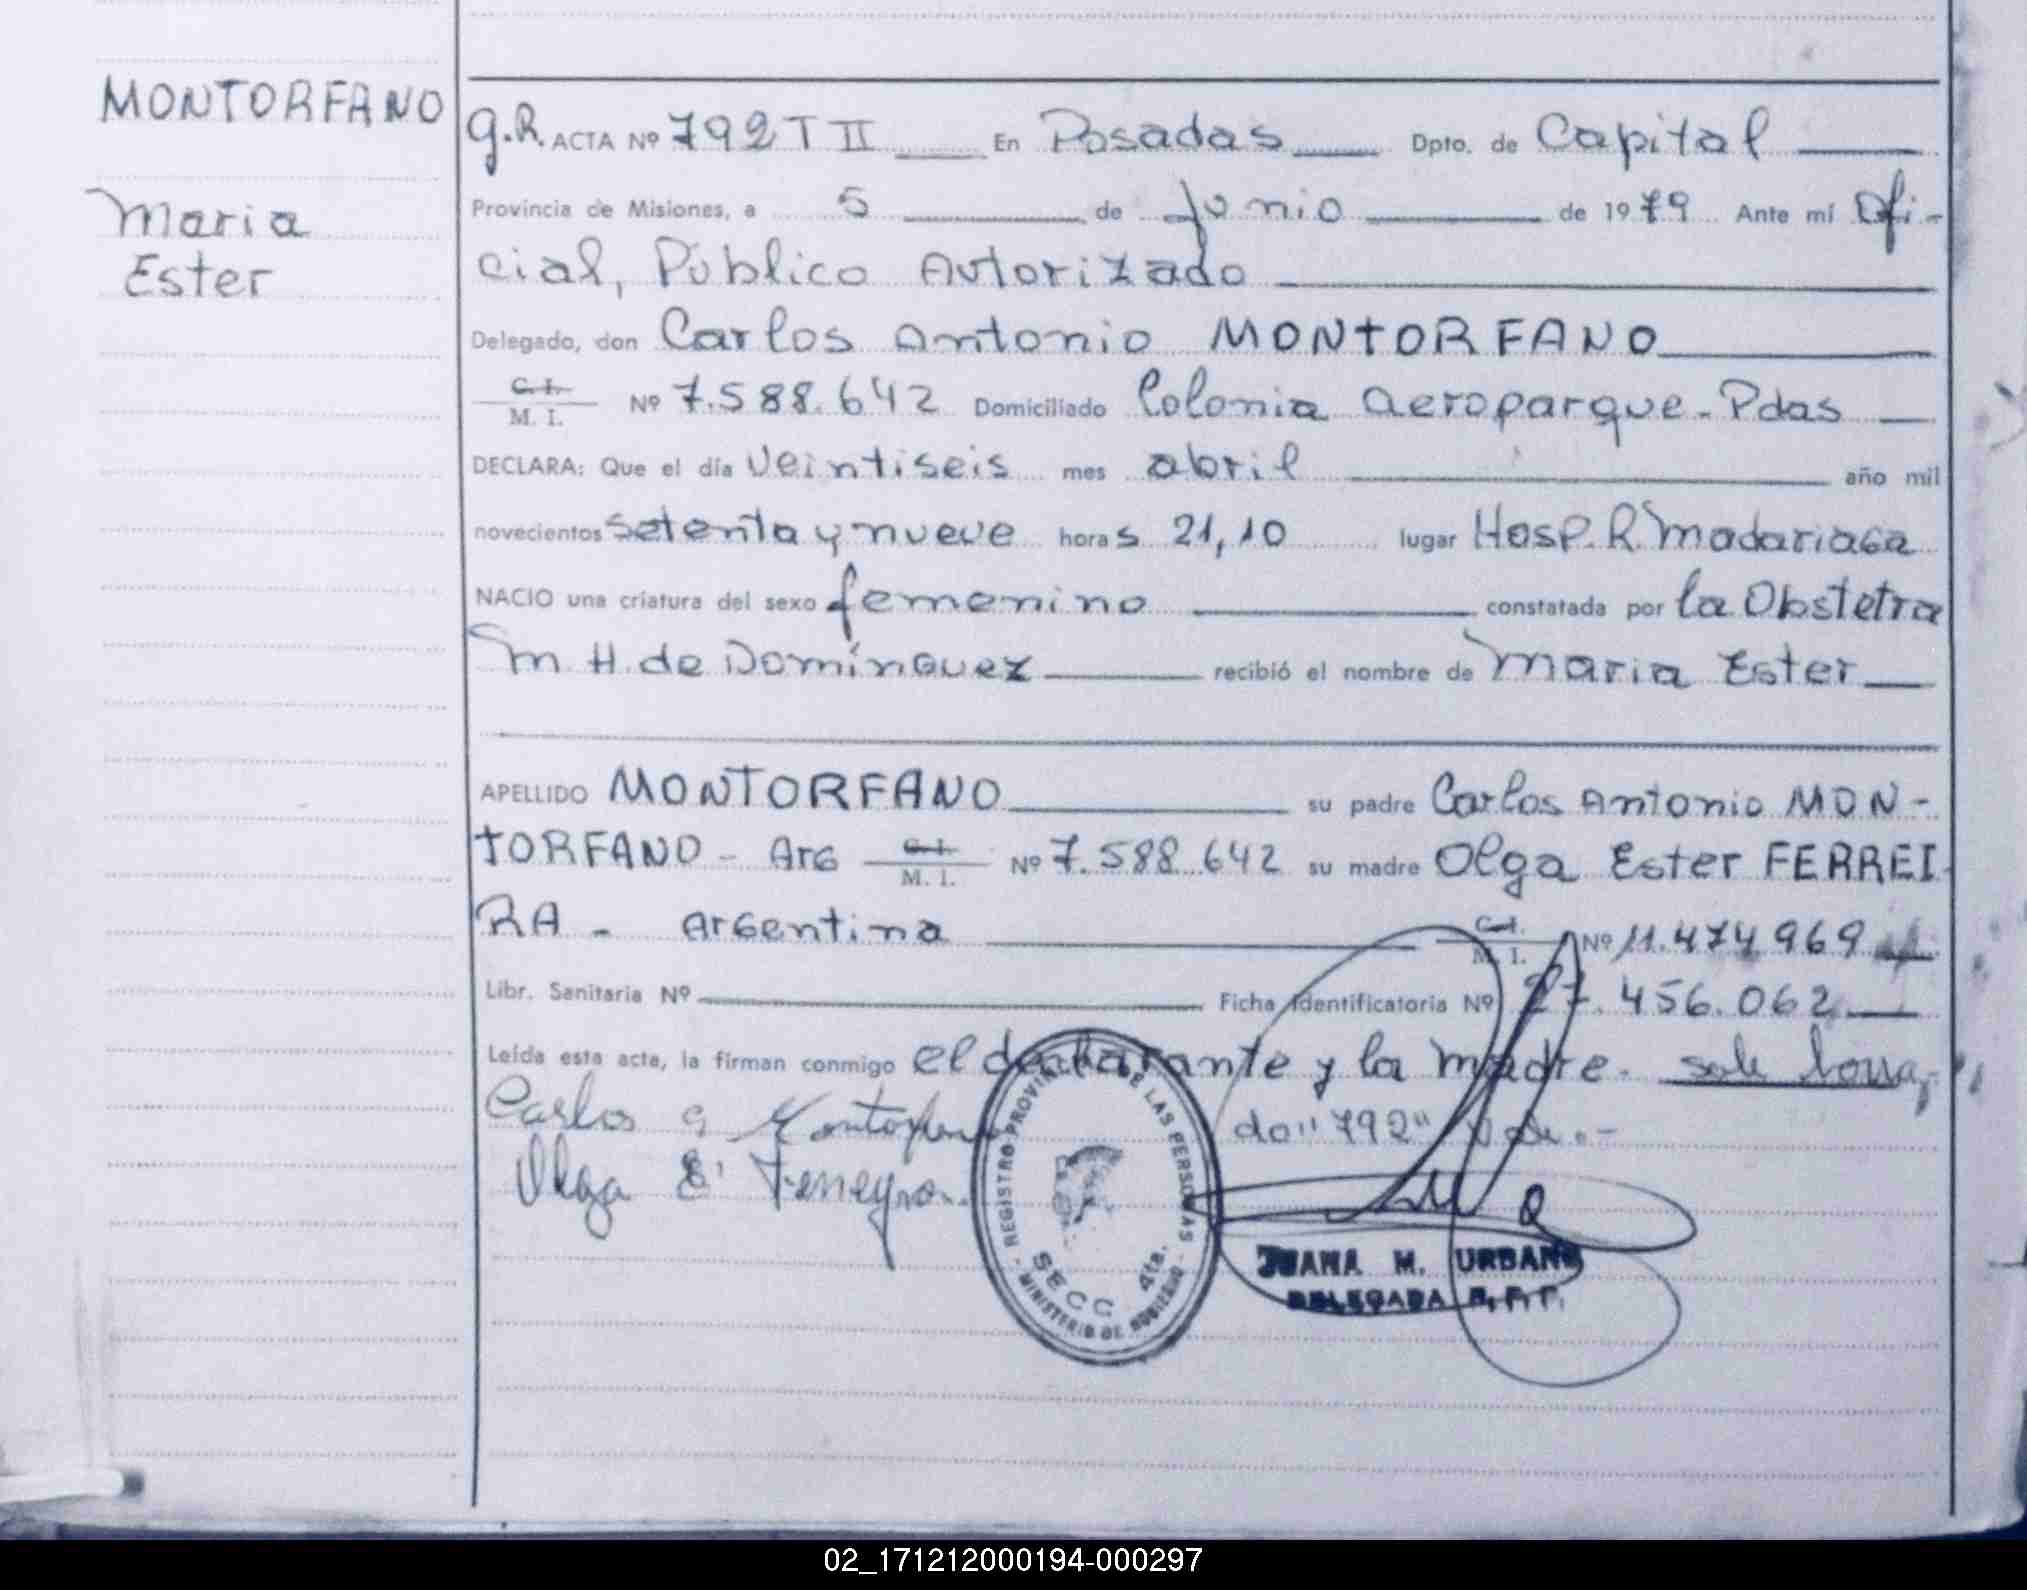 MONTORFANO
Maria
Ester
G.R. ACTA Nº 792 T II En Posadas Dpto. de Capital
Provincia de Misiones, a 5 de Junio de 1979 Ante mí Ofi-
cial, Público Autorizado
Delegado, don Carlos Antonio MONTORFANO
C.I. M. I. Nº 7.588.642 Domiciliado Colonia Aeroparque - Pdas
DECLARA: Que el día veintiseis mes abril año mil
novecientos setenta y nueve horas 21,10 lugar Hosp. R. Madariaga
NACIO una criatura del sexo femenino constatada por la Obstetra
M. H. de Domínguez recibió el nombre de Maria Ester
APELLIDO MONTORFANO su padre Carlos Antonio MON-
TORFANO - Arg C.I. M. I. Nº 7.588.642 su madre Olga Ester FERREI
RA - Argentina C.I. M. I. Nº 11.474969
Libr. Sanitaria Nº Ficha Identificatoria Nº 27.456.062
Leída esta acta, la firman conmigo el declarante y la madre.
Carlos A Montorfano do "792" Vale.-
Olga E Ferreyra
REGISTRO PROVINCIAL DE LAS PERSONAS
- MINISTERIO DE GOBIERNO -
SECC 4ta.
JUANA M. URBANO
DELEGADA R.P.P.
02_171212000194-000297